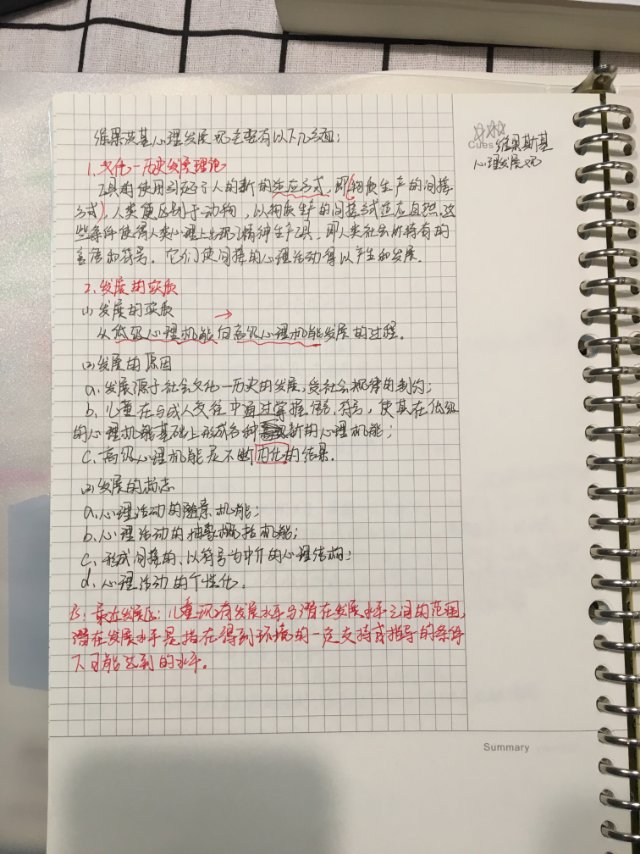 维果斯基心理发展观主要有以下几方面：
Cues 维果斯基
心理发展观
1. 文化—历史发展理论
工具的使用引起了人的新的适应方式，即(物质生产的间接
方式)，人类便区别于动物，以物质生产的间接方式适应自然。这
些条件使得人类心理上出现了精神生产工具，即人类社会所特有的
言语和符号，它们使间接的心理活动得以产生和发展。
2. 发展的实质
(1) 发展的实质
从低级心理机能向高级心理机能发展的过程。
(2) 发展的原因
a. 发展源于社会文化—历史的发展，受社会规律的制约；
b. 儿童在与成人交往中通过掌握 符号，使其在低级
的心理机能基础上形成各种新的心理机能；
c. 高级心理机能是不断内化的结果。
(3) 发展的标志
a. 心理活动的随意机能；
b. 心理活动的抽象概括机能；
c. 形成间接的、以符号为中介的心理结构；
d. 心理活动的个性化。
3. 最近发展区：儿童现有发展水平与潜在发展水平之间的范围，
潜在发展水平是指在得到环境的一定支持或指导的条件
下可能达到的水平。
Summary